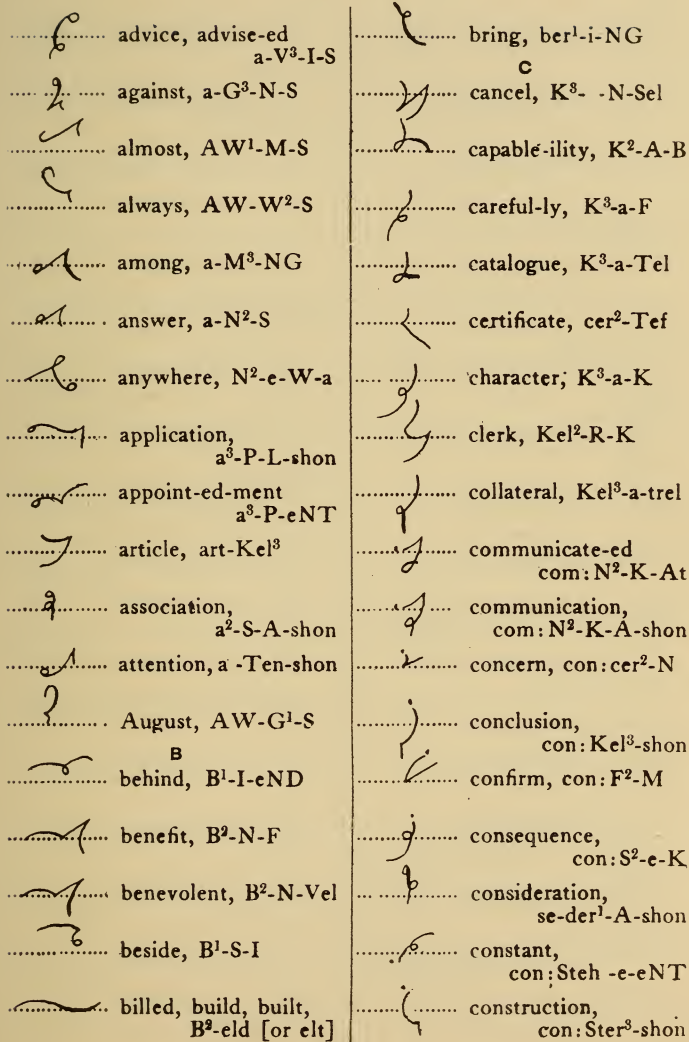 advice, advise-ed
a-V³-I-S
against, a-G³-N-S
almost, AW¹-M-S
always, AW-W²-S
among, a-M³-NG
answer, a-N²-S
anywhere, N²-e-W-a
application,
a³-P-L-shon
appoint-ed-ment
a³-P-eNT
article, art-Kel³
association,
a²-S-A-shon
attention, a -Ten-shon
August, AW-G¹-S
B
behind, B¹-I-eND
benefit, B²-N-F
benevolent, B²-N-Vel
beside, B¹-S-I
billed, build, built,
B²-eld [or elt]
bring, ber¹-i-NG
C
cancel, K³- -N-Sel
capable-ility, K²-A-B
careful-ly, K³-a-F
catalogue, K³-a-Tel
certificate, cer²-Tef
character, K³-a-K
clerk, Kel²-R-K
collateral, Kel³-a-trel
communicate-ed
com:N²-K-At
communication,
com:N²-K-A-shon
concern, con:cer²-N
conclusion,
con:Kel³-shon
confirm, con:F²-M
consequence,
con:S²-e-K
consideration,
se-der¹-A-shon
constant,
con:Steh -e-eNT
construction,
con:Ster³-shon